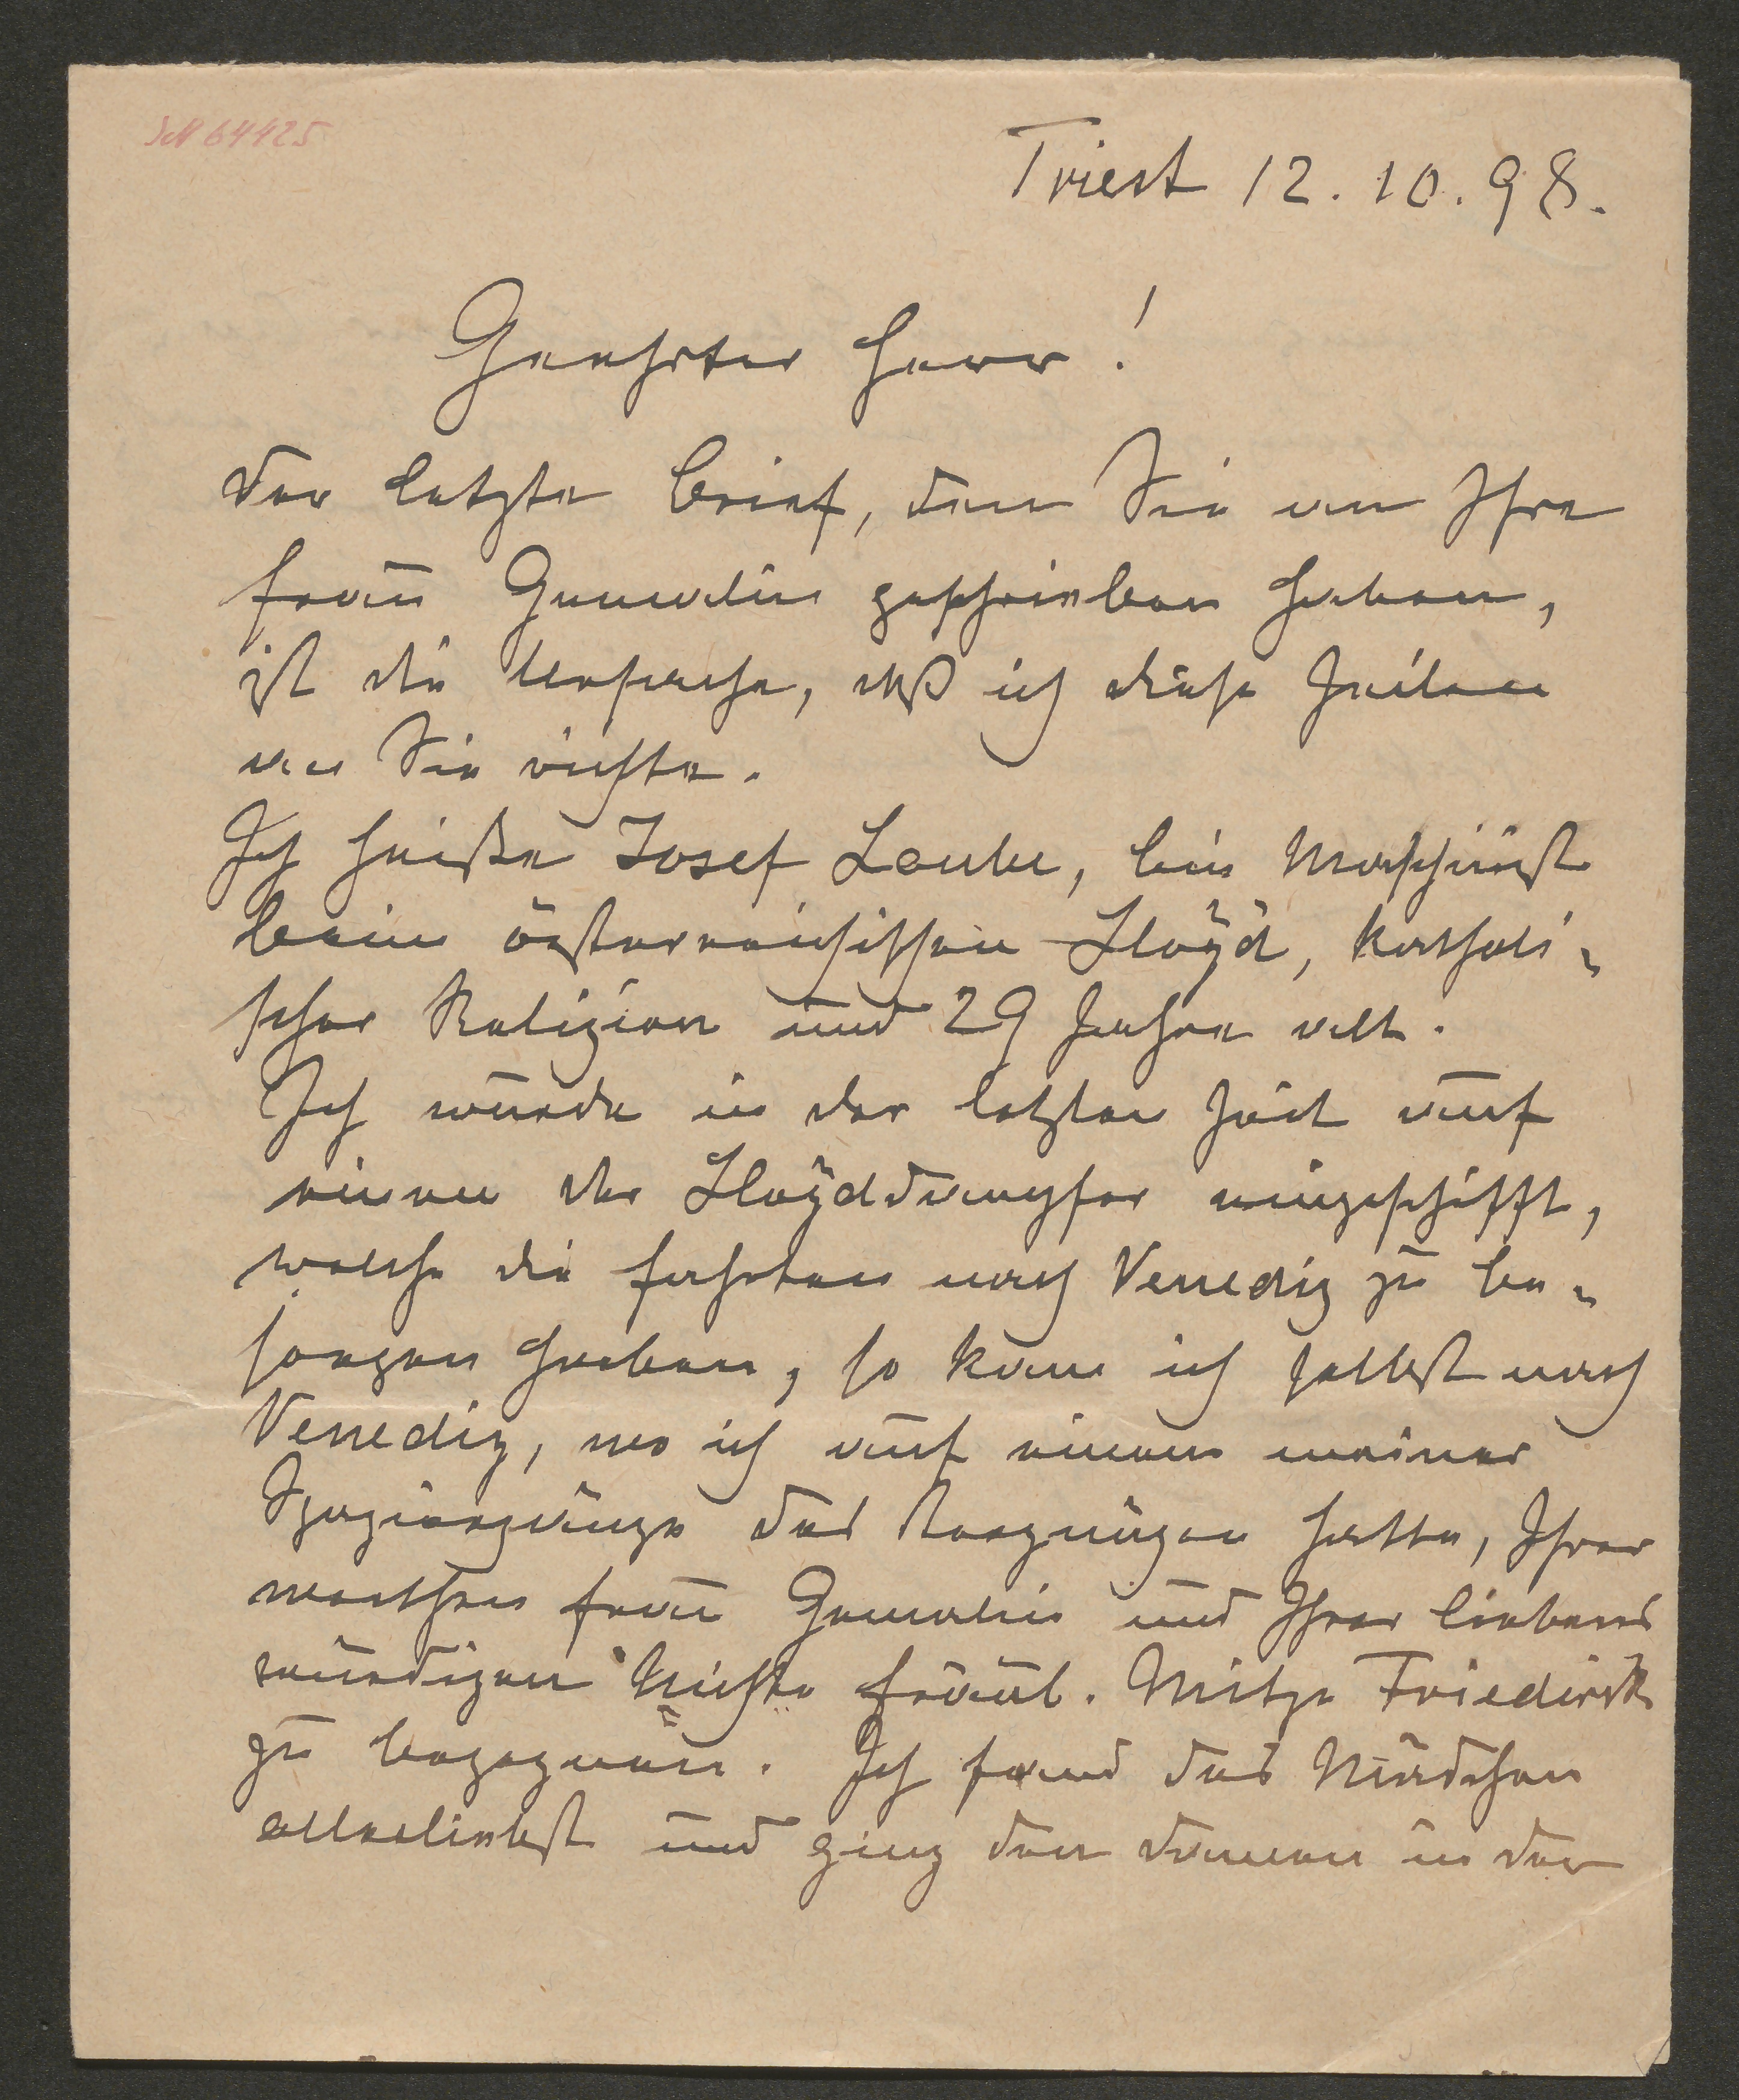 Triest 12. 10. 98.
Geehrter Herr!
Der letzte Brief, den Sie an Ihre
Frau Gemalin geschrieben haben,
ist die Ursache, daß ich diese Zeilen
an Sie richte.
Ich heiße Josef Laube, bin Maschinist
beim österreichischen Lloÿd, katholi-
scher Religion und 29 Jahre alt.
Ich wurde in der letzten Zeit auf
einen der Lloÿddampfer eingeschifft,
welche die Fahrten nach Venedig zu be-
sorgen haben, so kam ich selbst nach
Venedig, wo ich auf einem meiner
Spaziergänge das Vergnügen hatte, Ihrer
werthen Frau Gemalin und Ihrer liebens
würdigen Nichte Fräul. Mitze
zu begegnen. Ich fand das Mädchen
allerliebst und ging den Damen in der